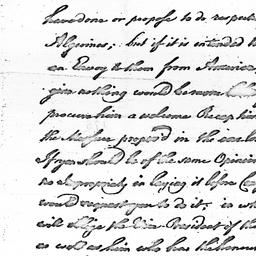 have done or propose to do respect
Algerines; but if it is intended t
an Envoy to them from America
give nothing would be more
procure him a welcome Reception
the Measure propos'd in the
If you should be of the same Opinion
no impropriety in laying it before
would request you to do it; in wh
will oblige the Vice President of th
as well as him who has the honour